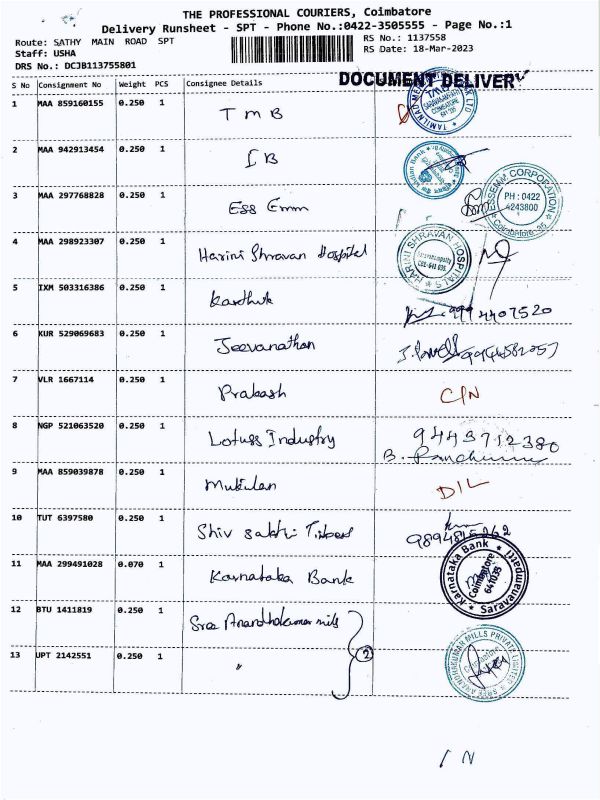 THE PROFESSIONAL COURIERS, Coimbatore
Delivery Runsheet - SPT - Phone No.:0422-3505555 - Page No.:1
Route: SATHY MAIN ROAD SPT
Staff: USHA
DRS No.: DCJB113755801
RS No.: 1137558
RS Date: 18-Mar-2023
DOCUMENT DELIVERY
S No Consignment No Weight PCS Consignee Details
1 MAA 859160155 0.250 1 TMB
2 MAA 942913454 0.250 1 IB
3 MAA 297768828 0.250 1 Ess Emm
ESSEMM CORPORATION
PH : 0422
4243800
Coimbatore-35
4 MAA 298923307 0.250 1 Harini Shravan Hospital
HARINI SHRAVAN HOSPITALS
5 IXM 503316386 0.250 1 Karthik
6 KUR 529069683 0.250 1 Jeevanathan
7 VLR 1667114 0.250 1 Prakash C/N
8 NGP 521063520 0.250 1 Lotuss Industry 9443712380
9 MAA 859039878 0.250 1 Mukilan D/L
10 TUT 6397580 0.250 1 Shiv sakthi
11 MAA 299491028 0.070 1 Karnataka Bank
Karnataka Bank
Coimbatore
641035
Saravanampatti
12 BTU 1411819 0.250 1 Sree Anandhakumar mills
2
13 UPT 2142551 0.250 1 "
SREE ANANDHAKUMAR MILLS PRIVATE LIMITED
/ N